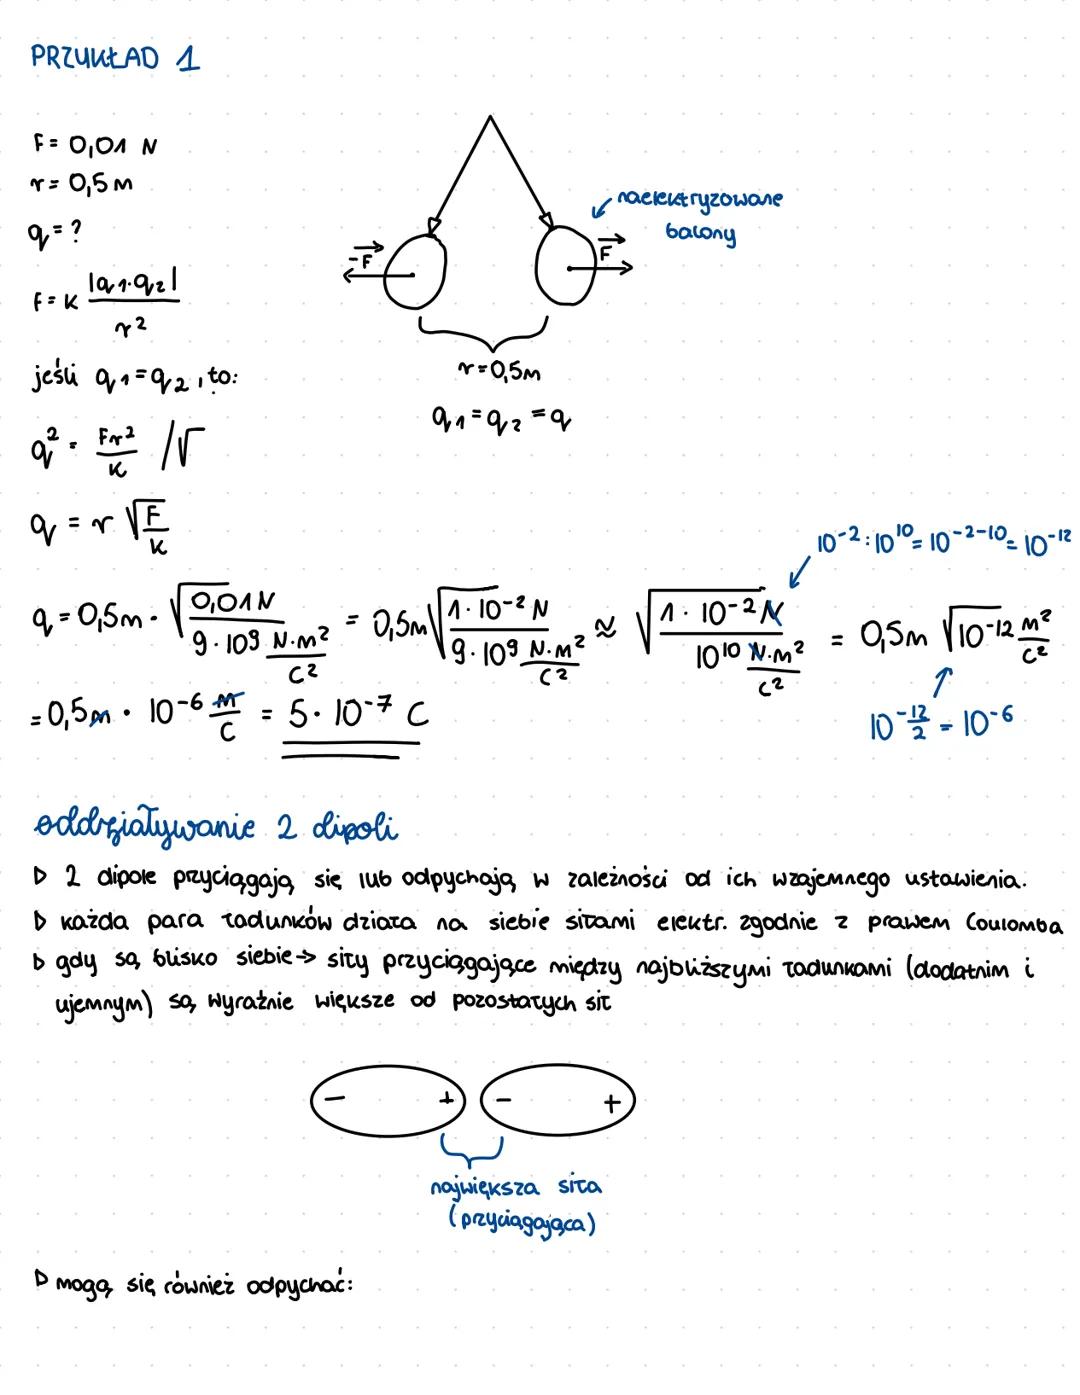 PRZYKŁAD 1
F = 0,01 N
r = 0,5 m
q = ?
F = k |q₁·q₂| / r²
jeśli q₁=q₂, to:
q² = Fr²/k /√
q = r √(F/k)
-F
F
naelektryzowane
balony
r=0,5m
q₁=q₂=q
10⁻² : 10¹⁰ = 10⁻²⁻¹⁰ = 10⁻¹²
q = 0,5m · √(0,01N / 9·10⁹ N·m²/C²) = 0,5m √(1·10⁻² N / 9·10⁹ N·m²/C²) ≈ √(1·10⁻² N / 10¹⁰ N·m²/C²) = 0,5m √(10⁻¹² m²/C²)
= 0,5m · 10⁻⁶ m/C = 5·10⁻⁷ C
10^(-12/2) = 10⁻⁶
oddziaływanie 2 dipoli
▷ 2 dipole przyciągają się lub odpychają w zależności od ich wzajemnego ustawienia.
▷ każda para ładunków działa na siebie siłami elektr. zgodnie z prawem Coulomba
▷ gdy są blisko siebie → siły przyciągające między najbliższymi ładunkami (dodatnim i
ujemnym) są wyraźnie większe od pozostałych sił
- + - +
największa siła
(przyciągająca)
▷ mogą się również odpychać: